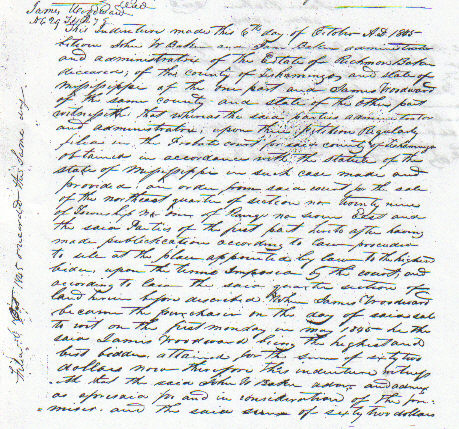 James Woodward Deed
N.E 29 T4 R7E
This Indenture made this 6th day of October A.D. 1845
between John W Baker and Jane Baker administrator
and administratrix of the Estate of Richmon Baker
deceased, of the county of Tishamingo and state of
Mississippi of the one part and James Woodward
of the same county and state of the other part
witnesseth that whereas the said parties administrator
and administratrix upon their petition Regularly
filed in the Probate court for said county of Tishamingo
obtained in accordance with the statute of the
state of Mississippi in such case made and
provided an order from said court for the sale
of the northeast quarter of section no twenty nine
of Township no four of Range no seven East and
the said Parties of the first part hereto after having
made publication according to law proceeded
to sell at the place appointed by law to the highest
bider, upon the terms Imposed by the court, and
according to law the said quarter section of
land herein before described When James Woodward
became the purchaser in the day of said sale
to wit on the first monday in may 1845 he the
said James Woodward being the highest and
best bidder, attained for the sum of sixty two
dollars now therefore this indenture witness
eth that the said John W Baker admr and admx
as aforesaid for and in consideration of the pre
mises and the said sum of sixty two dollars
Filed 1845 recorded the same day